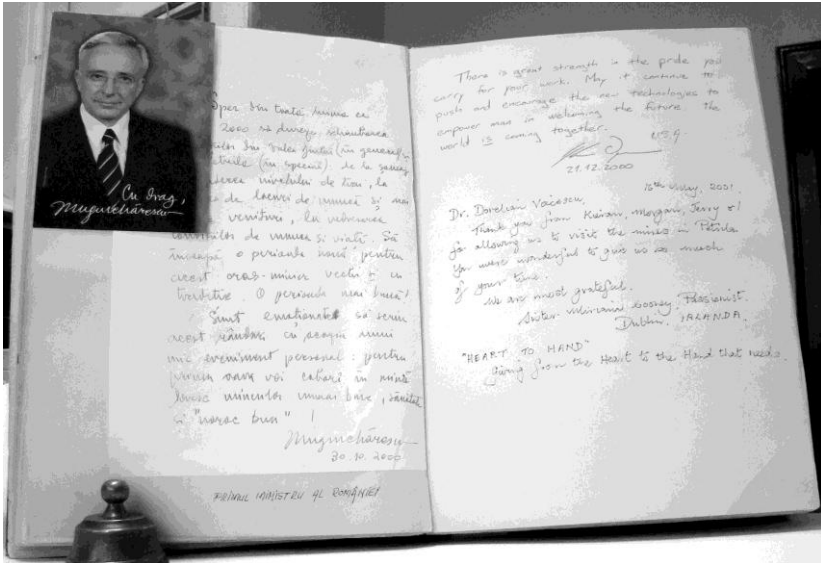 Cu drag,
Mugur Isărescu
Sper din toată inima ca
2000 să dureze schimbarea
din Valea Jiului (în general)
(în special). de la
nivelului de trai, la
de locuri de muncă și mai
venituri, la
condițiilor de muncă și viață. Să
înceapă o perioadă nouă pentru
acest oraș minier vechi și cu
tradiție. O perioadă mai bună!
Sunt emoționat să scriu
acest rânduri, cu ocazia unui
mic eveniment personal: pentru
prima oară voi coborî în mină
Urez minerilor numai bine, sănătate
și "noroc bun" !
Mugur Isărescu
30.10.2000
PRIMUL MINISTRU AL ROMÂNIEI
There is great strength in the pride you
carry for your work. May it continue to
push and encourage the new technologies to
empower man in welcoming the future. The
world is coming together.
USA.
21.12.2000
16th May, 2001.
Dr. Dorelian
Thank you from Kieran, Morgan, Jerry & I
for allowing us to visit the mines in Petrila
You were wonderful to give us so much
of your time.
We are most grateful.
Sister Passionist.
Dublin. IRLANDA.
"HEART TO HAND"
giving from the Heart to the Hand that needs.